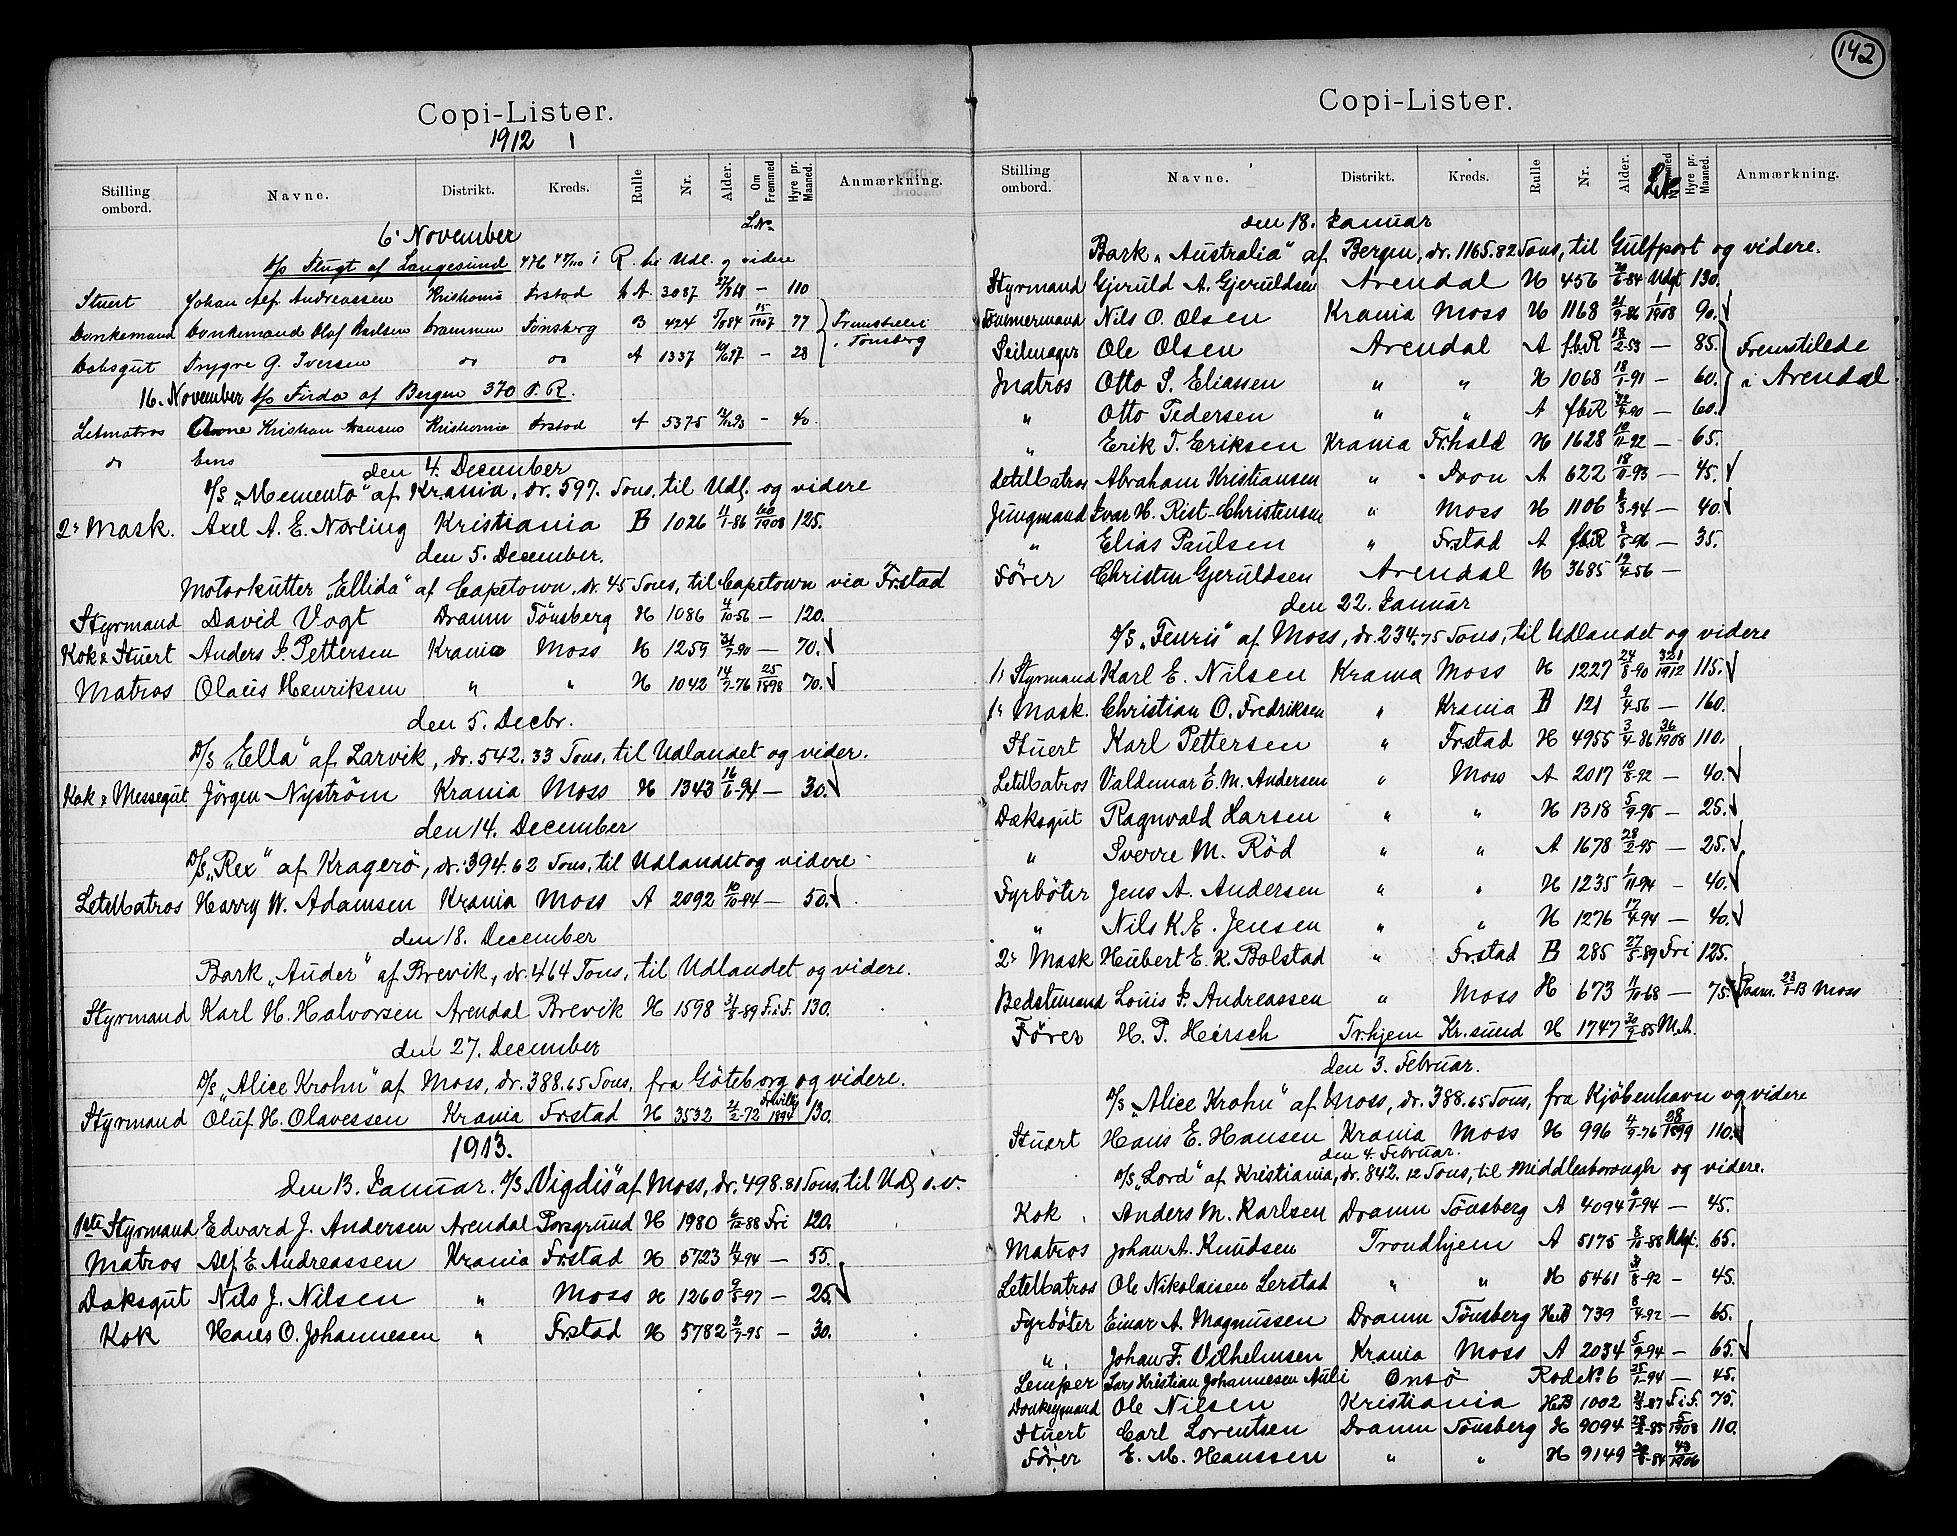 Copi-Lister.
1912 1
Stilling ombord. Navne. Distrikt. Kreds. Rulle Nr. Alder. Om Fremmed Hyre pr. Maaned. Anmærkning.
L.No
6. November
D/s Flugt af Langesund 476 i R. til Udl. og videre
Stuert Johan Alf Andreassen Kristiania Frstad A 3087 — 110
Donkemand Olaf Karlsen Drammen Tønsberg B 424 15/1907 77 Fremstillet i Tønsberg
Dæksgut Trygve G. Iversen do do A 1337 — 28
16. November D/s Firda af Bergen 370 T. R.
Letmatros Kristian Hansen Kristiania Frstad A 5375 — 40.
do Ems
den 4. December
D/S „Memento" af Krania, dr. 597. Tons, til Udl. og videre
2. Mask. Axel A. E. Norling Kristiania B 1026 11/1-86 60/1908 125.
den 5. December.
Motorkutter „Ellida" af Capetown, dr. 45 Tons, til Capetown via Frstad
Styrmand David Vogt Dramn Tönsberg H 1086 4/10-56 — 120.
Kok & Stuert Anders J. Pettersen Krania Moss H 1259 31/7-90 — 70.
Matros Olaus Henriksen " " H 1042 14/7-76 25/1898 70.
den 5. Decbr.
D/S „Ella" af Larvik, dr. 542.33 Tons, til Udlandet og vider.
Kok & Messegut Jörgen Nyström Krania Moss H 1343 16/6-94 — 30.
den 14. December
D/S „Rex" af Kragerö, dr. 394.62 Tons, til Udlandet og videre
LetMatros Harry W. Adamsen Krania Moss A 2092 10/10-94 — 50.
den 18. December
Bark „Auder" af Brevik, dr. 464 Tons, til Udlandet og videre.
Styrmand Karl H. Halvorsen Arendal Brevik H 1598 31/8-89 F.i.F. 130.
den 27. December
D/S „Alice Krohn" af Moss, dr. 388.65 Tons, fra Göteborg og videre.
Styrmand Oluf H. Olavessen Krania Frstad H 3532 21/2-72 Frivillig 1894 130.
1913.
den 13. Januar. D/S. „Vigdis" af Moss, dr. 498.81 Tons, til Udl. o.v.
1ste Styrmand Edvard J. Andersen Arendal Porsgrund H 1980 6/12-88 Fri 120.
Matros Alf E. Andreassen Krania Frstad H 5723 11/4-94 — 55.
Dæksgut Nils J. Nilsen " Moss H 1260 9/5-97 — 25.
Kok Hans O. Johannesen " Frstad H 5782 2/7-95 — 30.
142
Copi-Lister.
Stilling ombord. Navne. Distrikt. Kreds. Rulle Nr. Alder. L.No Hyre pr. Maaned. Anmærkning.
den 18. Januar
Bark „Australia" af Bergen, dr. 1165.82 Tons, til Gulfport og videre.
Styrmand Gjeruld A. Gjeruldsen Arendal H 456 20/6-84 Udgt 130.
Tömmermand Nils O. Olsen Krania Moss H 1168 21/9-86 1/1908 90.
Seilmager Ole Olsen Arendal A f.b.R 18/2-53 — 85. Fremstilede
Matros Otto S. Eliassen " " H 1068 18/1-91 — 60. i Arendal
" Otto Pedersen " " A fbR 22/4-90 — 60.
" Erik T. Eriksen Krania Fr.hald H 1628 10/11-92 — 65.
LetMatros Abraham Kristiansen " A 622 18/11-93 — 45.
Jungmand Ivar H. Rist-Christensen " Moss H 1106 8/3-94 — 40.
" Elias Paulsen " Frstad A fbR 8/8-96 — 35.
Förer Christen Gjeruldsen Arendal H 3685 19/4-56 —
den 22. Januar
D/S „Fenris" af Moss, dr. 234.75 Tons, til Udlandet og videre
1. Styrmand Karl E. Nilsen Krania Moss H 1227 24/8-90 321/1912 115.
1. Mask. Christian O. Fredriksen " Krania B 121 9/4-56 — 160.
Stuert Karl Pettersen " Frstad H 4955 3/4-86 36/1908 110.
LetMatros Valdemar E. M. Andersen " Moss A 2017 10/8-92 — 40.
Dæksgut Ragnvald Larsen " " H 1318 5/9-95 — 25.
" Sverre M. Röd " " A 1678 28/2-95 — 25.
Fyrböter Jens A. Andersen " " H 1235 1/11-94 — 40.
" Nils K. E. Jensen " " H 1276 17/4-94 — 40.
2. Mask Hubert E. K. Bolstad " Frstad B 285 27/5-89 Fri 125.
Bedstemand Louis J. Andreassen " Moss H 673 11/10-68 — 75. 23/1-13 Moss
Förer H. P. Hersch Tr.hjem Kr.sund H 1747 30/9-85 M.A.
den 3. Februar.
D/S „Alice Krohn" af Moss, dr. 388.65 Tons, fra Kjöbenhavn og videre
Stuert Hans E. Hansen Krania Moss H 996 4/9-76 28/1899 110.
den 4. Februar.
D/S „Lord" af Kristiania, dr. 842.12 Tons, til Middlesborough og videre.
Kok Anders M. Karlsen Dramn Tönsberg A 4094 6/1-94 — 45.
Matros Johan A. Knudsen Trondhjem A 5175 8/10-88 Udgt. 65.
LetMatros Ole Nikolaisen Lerstad " " H 5461 31/8-92 — 45.
Fyrböter Einar A. Magnussen Dramn Tönsberg H.B 739 8/4-92 — 65.
" Johan F. Vilhelmsen Krania Moss A 2034 5/9-94 — 65.
Lemper Lars Kristian Johannesen Auli Onsö Rode No 6 25/1-94 — 45.
Donkeymand Ole Nilsen Kristiania H.B 1002 21/3-87 F.i.F. 75.
Stuert Carl Lorentsen Dramn Tönsberg H 9094 28/2-85 5/1908 110.
Förer E. M. Hanssen " " H 9149 20/8-84 43/1906